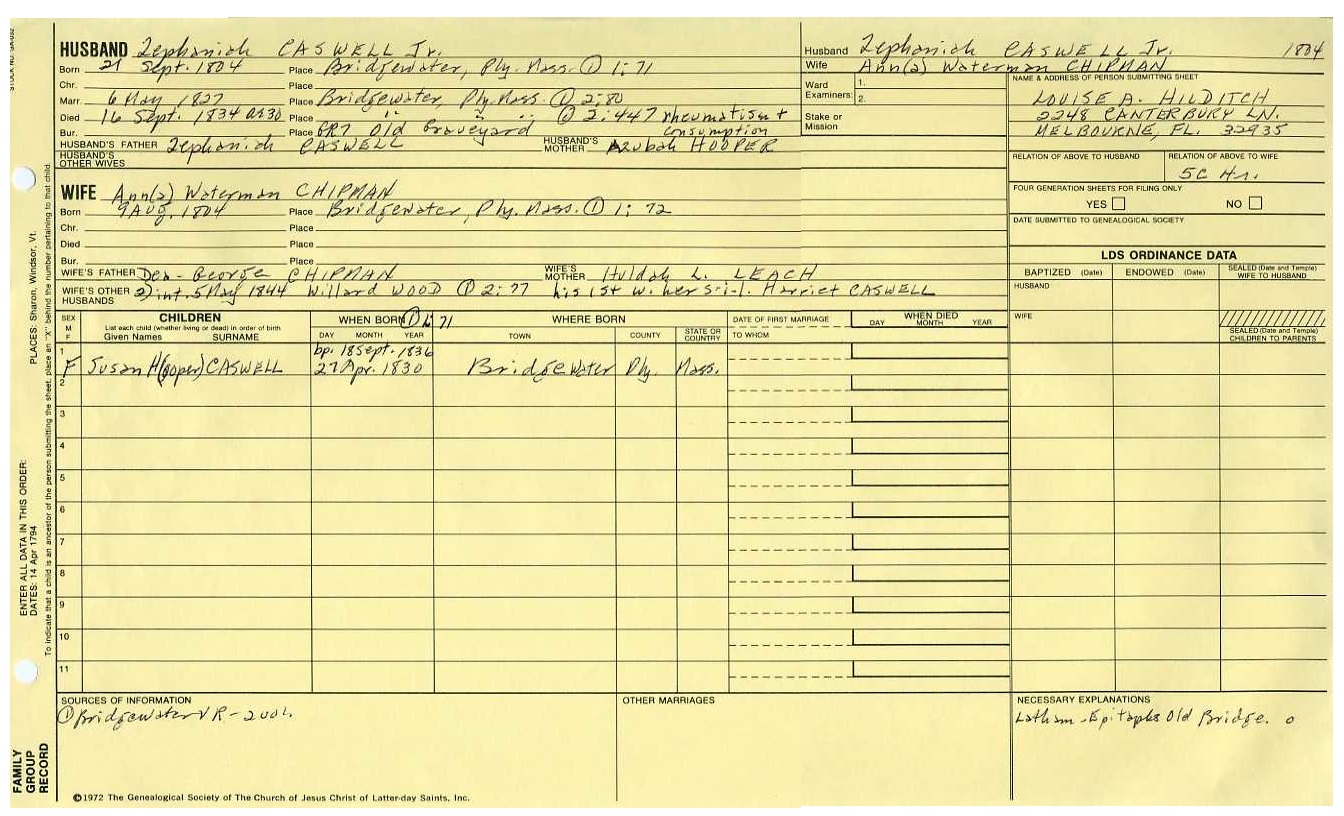 STOCK NO. GA-092
HUSBAND Zephaniah CASWELL Jr.
Born 21 Sept. 1804 Place Bridgewater, Ply. Mass. ① 1:71
Chr. Place
Marr. 6 May 1827 Place Bridgewater, Ply. Mass. ① 2:80
Died 16 Sept. 1834 ae 30 Place " " " ① 2:447 rheumatism +
Bur. Place GR7 Old Graveyard consumption
HUSBAND'S FATHER Zephaniah CASWELL HUSBAND'S MOTHER Azubah HOOPER
HUSBAND'S OTHER WIVES
WIFE Ann(a) Waterman CHIPMAN
Born 9 Aug. 1804 Place Bridgewater, Ply. Mass. ① 1:72
Chr. Place
Died Place
Bur. Place
WIFE'S FATHER Dea- George CHIPMAN WIFE'S MOTHER Huldah L. LEACH
WIFE'S OTHER HUSBANDS 2) int. 5 May 1844 Willard WOOD ① 2:77 his 1st w. her s-i-l. Harriet CASWELL
Husband Zephaniah CASWELL Jr. 1804
Wife Ann(a) Waterman CHIPMAN
Ward Examiners: 1. 2.
Stake or Mission
NAME & ADDRESS OF PERSON SUBMITTING SHEET
LOUISE A. HILDITCH
2248 CANTERBURY LN.
MELBOURNE, FL. 32935
RELATION OF ABOVE TO HUSBAND RELATION OF ABOVE TO WIFE
5C
FOUR GENERATION SHEETS FOR FILING ONLY
YES NO
DATE SUBMITTED TO GENEALOGICAL SOCIETY
LDS ORDINANCE DATA
BAPTIZED (Date) ENDOWED (Date) SEALED (Date and Temple) WIFE TO HUSBAND
HUSBAND
WIFE
SEALED (Date and Temple) CHILDREN TO PARENTS
SEX M F CHILDREN WHEN BORN ① 1:71 WHERE BORN DATE OF FIRST MARRIAGE WHEN DIED
List each child (whether living or dead) in order of birth
Given Names SURNAME DAY MONTH YEAR TOWN COUNTY STATE OR COUNTRY TO WHOM DAY MONTH YEAR
bp. 18 Sept. 1836
1 F Susan H(ooper) CASWELL 27 Apr. 1830 Bridgewater Ply. Mass.
2
3
4
5
6
7
8
9
10
11
SOURCES OF INFORMATION
① Bridgewater VR-2vol.
OTHER MARRIAGES
NECESSARY EXPLANATIONS
Latham-Epitaphs Old Bridge.
©1972 The Genealogical Society of The Church of Jesus Christ of Latter-day Saints, Inc.
FAMILY
GROUP
RECORD
ENTER ALL DATA IN THIS ORDER:
DATES: 14 Apr 1794
PLACES: Sharon, Windsor, Vt.
To indicate that a child is an ancestor of the person submitting the sheet, place an "X" behind the number pertaining to that child.